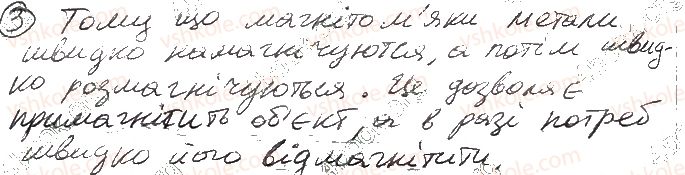 ③ Тому що магнітом'яки метали
швидко намагнічуются, а потім швид-
ко розмагнічуються. Це дозволяє
примагнітить об'єкт, а в разі потреб
швидко його відмагнітити.